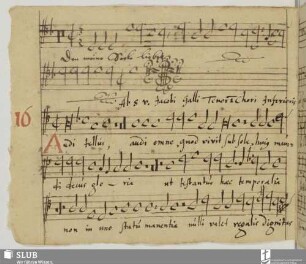 Den meine Seele
Ab 8 v. Jacobi Galli Tenor 2 chori Inferioris
16
Adi tellus audi omne quod vivit sub sole, huius mun=
di decus glo ria ut testantur haec temporalia
non in uno statu manentia nulli valet regalis dignitas
SLUB
Wir führen Wissen.